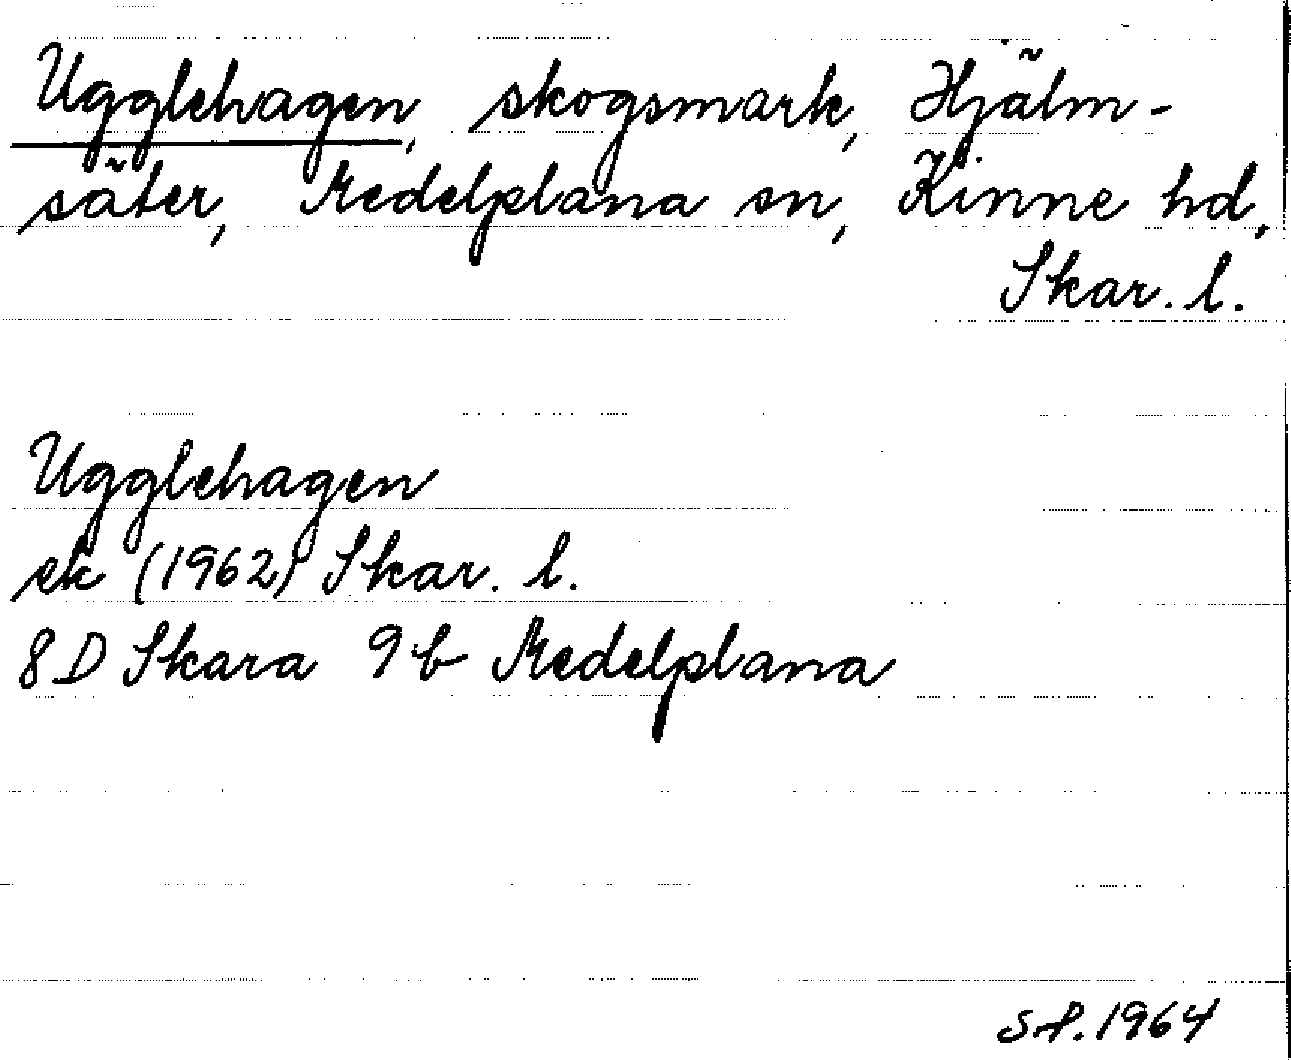 Ugglehagen, skogsmark, Hjälm-
säter, Medelplana sn, Kinne hd,
Skar. l.
Ugglehagen
ek (1962) Skar. l.
8D Skara 9b Medelplana
S.P. 1964